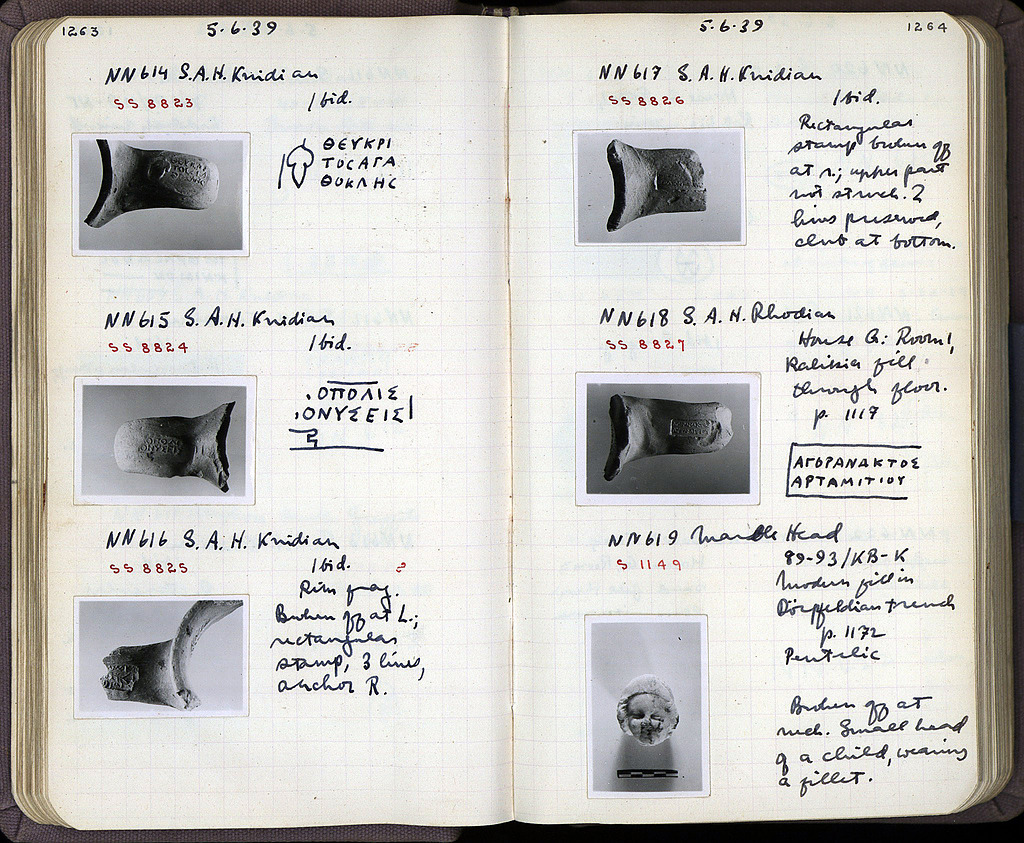 1263
5·6·39
NN614 S.A.H. Knidian
SS 8823
Ibid.
ΘΕΥΚΡΙ
ΤΟCΑΓΑ
ΘΟΚΛΗC
NN615 S.A.H. Knidian
SS 8824
Ibid.
.ΟΠΟΛΙΣ
.ΟΝΥΣΕΙΣ
NN616 S.A.H. Knidian
SS 8825
Ibid.
Rim frag.
Broken off at L.;
rectangular
stamp, 3 lines,
anchor R.
5·6·39
1264
NN617 S.A.H. Knidian
SS 8826
Ibid.
Rectangular
stamp broken off
at r.; upper part
not struck. 2
lines preserved,
club at bottom.
NN618 S.A.H. Rhodian
SS 8827
House G: Room 1,
Kalitsia fill
through floor.
p. 1117
ΑΓΟΡΑΝΑΚΤΟΣ
ΑΡΤΑΜΙΤΙΟΥ
NN619 Marble Head
S 1149
89-93/ΚΒ-Κ
Modern fill in
Dörpfeldian trench
p. 1172
Pentelic
Broken off at
neck. Small head
of a child, wearing
a fillet.